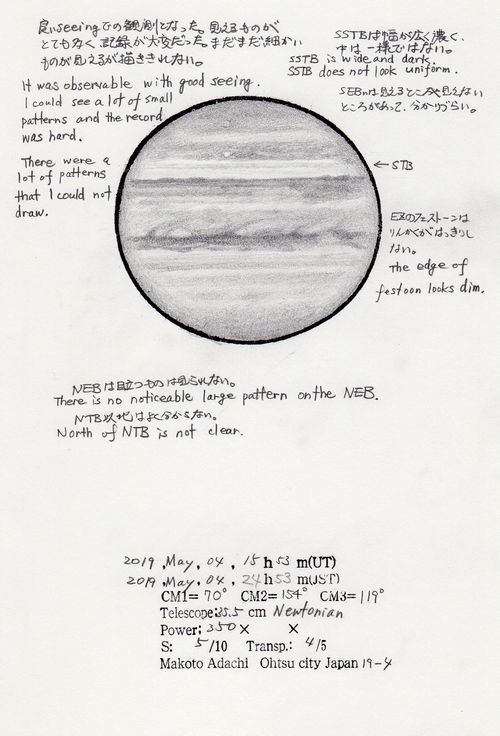 良いseeingでの観測となった。見えるものが
とても多く、記録が大変だった。まだまだ細かい
ものが見えるが描ききれない。
It was observable with good seeing.
I could see a lot of small
patterns and the record
was hard.
There were a
lot of patterns
that I could not
draw.
SSTBは幅が広く濃く、
中は一様ではない。
SSTB is wide and dark.
SSTB does not look uniform.
SEBnは見えるところや見えない
ところがあって、分かりづらい。
← STB
EZのフェストーンは
りんかくがはっきりし
ない。
The edge of
festoon looks dim.
NEBは目立つものは見られない。
There is no noticeable large pattern on the NEB.
NTB以北はよく分からない。
North of NTB is not clear.
2019, May, 04, 15 h 53 m(UT)
2019, May, 04, 24 h 53 m(JST)
CM1= 70° CM2= 154° CM3= 119°
Telescope: 35.5 cm Newtonian
Power: 350 × ×
S: 5/10 Transp.: 4/5
Makoto Adachi Ohtsu city Japan 19-4